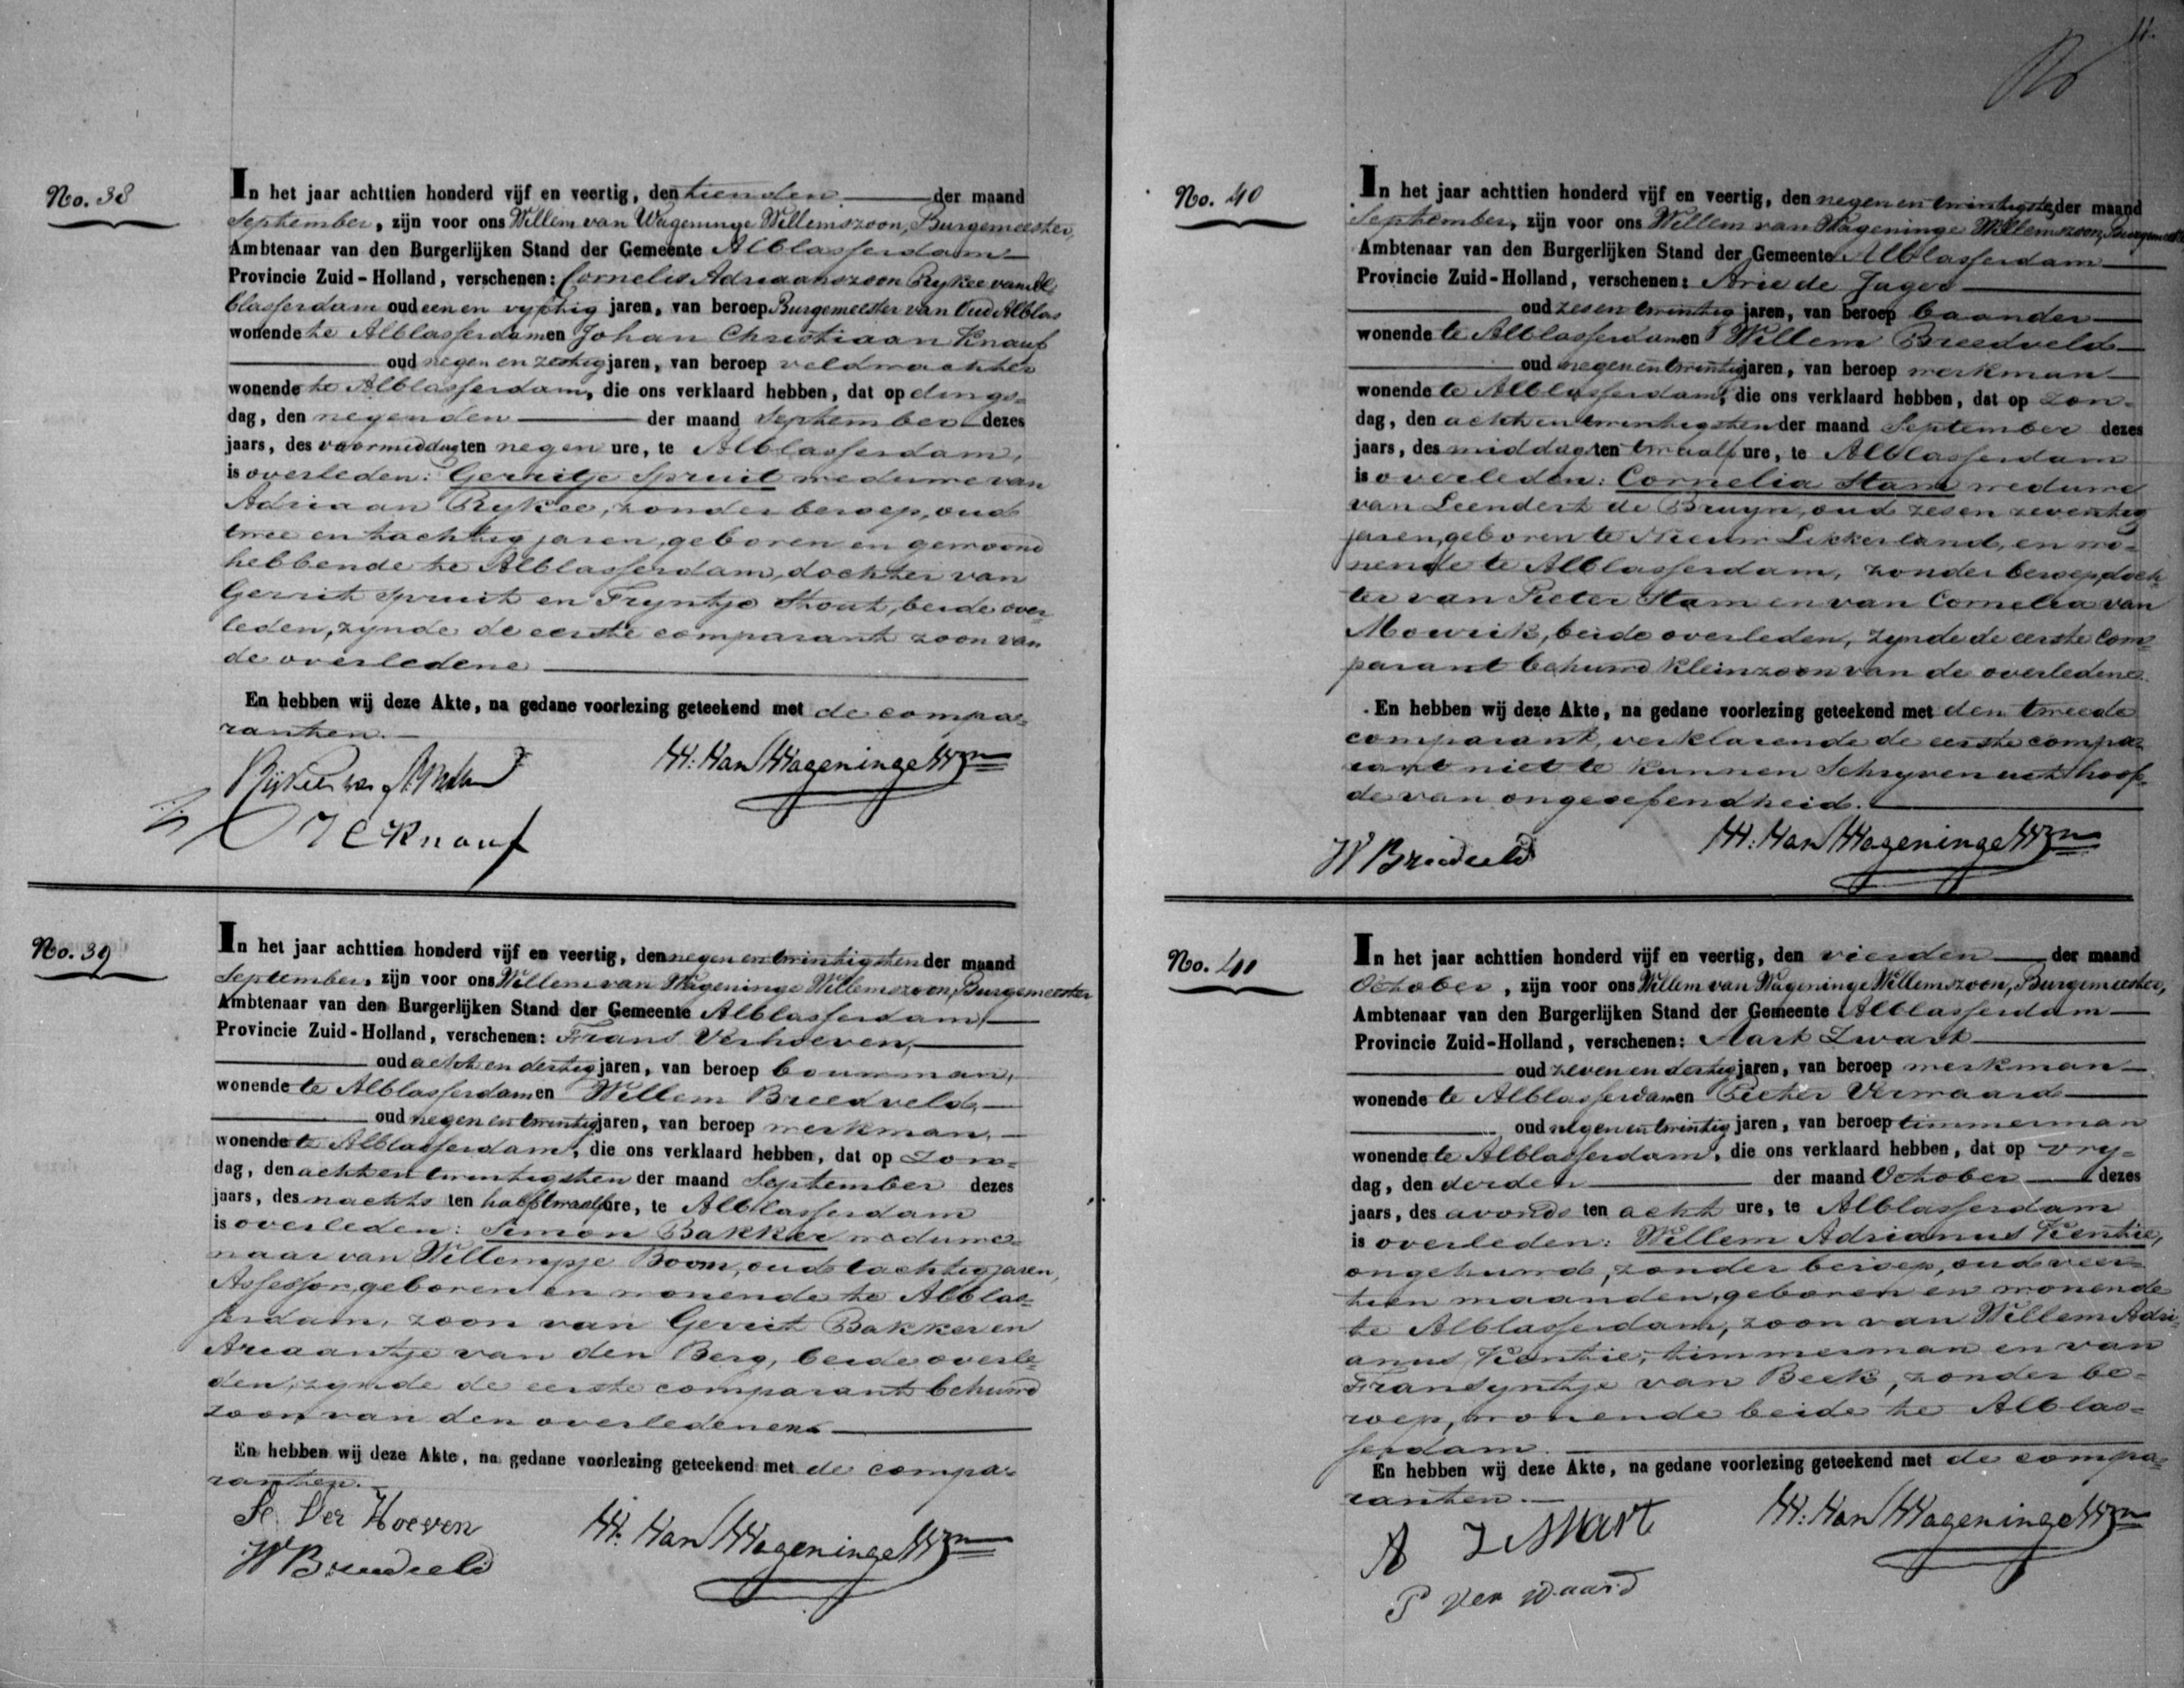 No. 38
In het jaar achttien honderd vijf en veertig, den tienden der maand
September, zijn voor ons Willem van Wageninge Willemszoon, Burgemeester,
Ambtenaar van den Burgerlijken Stand der Gemeente Alblasserdam
Provincie Zuid-Holland, verschenen: Cornelis Adriaanszoon Rykee van Al
blasserdam oud een en vyftig jaren, van beroep Burgemeester van Oud Alblas
wonende te Alblasserdam en Johan Christiaan Knauf
oud negen en zestig jaren, van beroep veldwachter
wonende te Alblasserdam, die ons verklaard hebben, dat op dings=
dag, den negenden der maand September dezes
jaars, des voormiddag ten negen ure, te Alblasserdam,
is overleden: Gerritje Spruit weduwe van
Adriaan Rykee, zonder beroep, oud
twee en tachtig jaren, geboren en gewoond
hebbende te Alblasserdam, dochter van
Gerrit Spruit en Fryntje Stout, beide over
leden, zynde de eerste comparant zoon van
de overledene
En hebben wij deze Akte, na gedane voorlezing geteekend met de compa=
ranten.
W. Van Wageninge Wzn
J C Knauf
No. 39
In het jaar achttien honderd vijf en veertig, den negen en twintigsten der maand
September, zijn voor ons Willem van Wageninge Willemszoon, Burgemeester
Ambtenaar van den Burgerlijken Stand der Gemeente Alblasserdam,
Provincie Zuid-Holland, verschenen: Frans Verhoeven,
oud acht en dertig jaren, van beroep bouwman,
wonende te Alblasserdam en Willem Breedveld,
oud negen en twintig jaren, van beroep werkman,
wonende te Alblasserdam, die ons verklaard hebben, dat op Zon=
dag, den acht en twintigsten der maand September dezes
jaars, des nachts ten half twaalf ure, te Alblasserdam
is overleden: Simon Bakker weduwe=
naar van Willempje Boom, oud tachtig jaren,
Assessor, geboren en wonende te Alblas=
serdam, zoon van Gerrit Bakker en
Ariaantje van den Berg, beide overle=
den, zynde de eerste comparant behuwd
zoon van den overledenen
En hebben wij deze Akte, na gedane voorlezing geteekend met de compa=
ranten.
Ver Hoeven
W. Van Wageninge Wzn
W Breedveld
No. 40
In het jaar achttien honderd vijf en veertig, den negen en twintigste der maand
September, zijn voor ons Willem van Wageninge Willemszoon, Burgemeester
Ambtenaar van den Burgerlijken Stand der Gemeente Alblasserdam
Provincie Zuid-Holland, verschenen: Arie de Jager
oud zes en twintig jaren, van beroep baander
wonende te Alblasserdam en Willem Breedveld
oud negen en twintig jaren, van beroep werkman
wonende te Alblasserdam, die ons verklaard hebben, dat op Zon=
dag, den acht en twintigsten der maand September dezes
jaars, des middags ten twaalf ure, te Alblasserdam
is overleden: Cornelia Stam weduwe
van Leendert de Bruyn, oud zes en zeventig
jaren, geboren te Nieuw Lekkerland, en wo=
nende te Alblasserdam, zonder beroep, doch
ter van Pieter Stam en van Cornelia van
Mowrik, beide overleden, zynde de eerste com=
parant behuwd kleinzoon van de overledene.
En hebben wij deze Akte, na gedane voorlezing geteekend met den tweede
comparant, verklarende de eerste compa=
rant niet te kunnen Schryven uit hoof=
de van ongeoefendheid.
W Breedveld
W. Van Wageninge Wzn
No. 41
In het jaar achttien honderd vijf en veertig, den vierden der maand
October, zijn voor ons Willem van Wageninge Willemszoon, Burgemeester,
Ambtenaar van den Burgerlijken Stand der Gemeente Alblasserdam
Provincie Zuid-Holland, verschenen: Aart Zwart
oud zeven en dertig jaren, van beroep werkman
wonende te Alblasserdam en Pieter Verwaard
oud negen en twintig jaren, van beroep timmerman
wonende te Alblasserdam, die ons verklaard hebben, dat op vry=
dag, den derden der maand October dezes
jaars, des avonds ten acht ure, te Alblasserdam
is overleden: Willem Adrianus Kentie,
ongehuwd, zonder beroep, oud veer=
tien maanden, geboren en wonende
te Alblasserdam, zoon van Willem Adri=
anus Kentie, timmerman en van
Fransyntje van Beek, zonder be=
roep, wonende beide te Alblas=
serdam.
En hebben wij deze Akte, na gedane voorlezing geteekend met de compa=
ranten.
A Zwart
W. Van Wageninge Wzn
P Ver waard